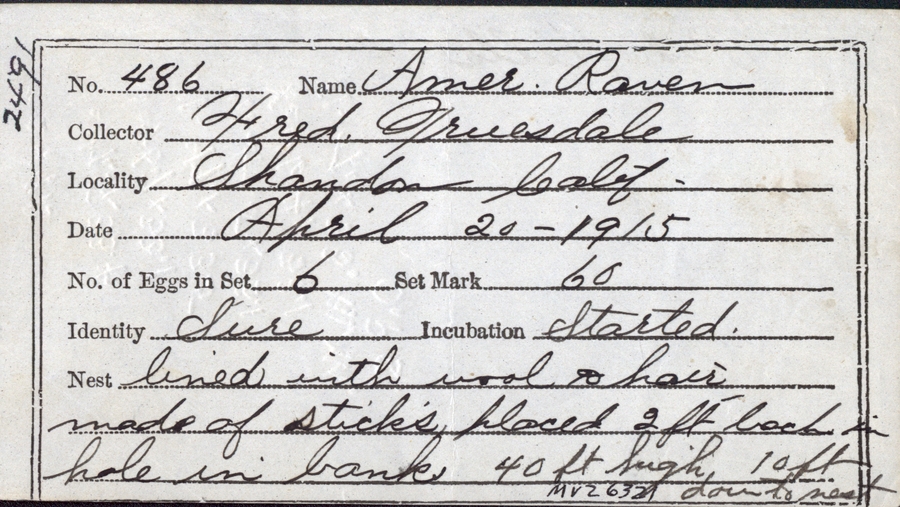 2491
No. 486 Name Amer. Raven
Collector Fred. Truesdale
Locality Shandon Calif.
Date April 20-1915
No. of Eggs in Set 6 Set Mark 60
Identity Sure Incubation Started.
Nest lined with wool & hair
made of sticks, placed 2 ft back in
hole in bank. 40 ft high, 10 ft
down to nest
MVZ 6321